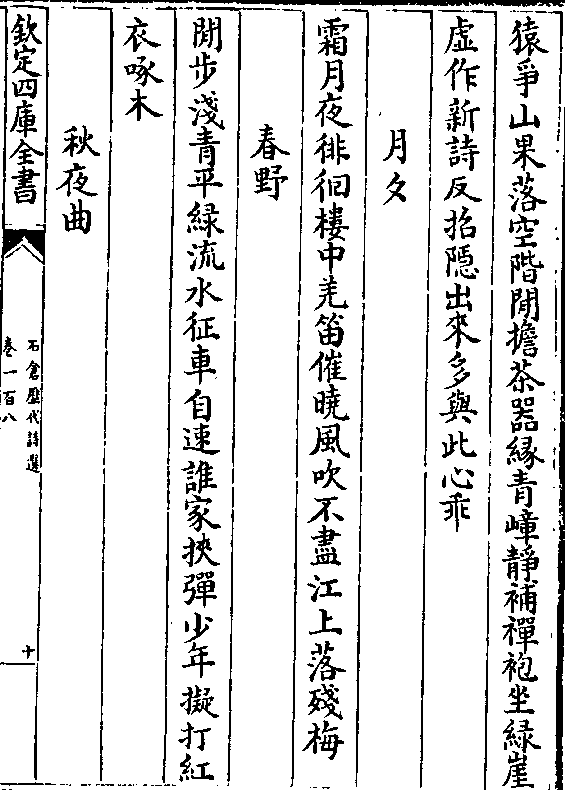 猿爭山果落空階閒擔茶器緣青嶂靜補禪袍坐綠崖
虛作新詩反招隱出來多與此心乖
月夕
霜月夜徘徊樓中羌笛催曉風吹不盡江上落殘梅
春野
閒步淺青平綠流水征車自速誰家挾彈少年擬打紅
衣啄木
秋夜曲
欽定四庫全書
石倉歷代詩選
卷一百八
十